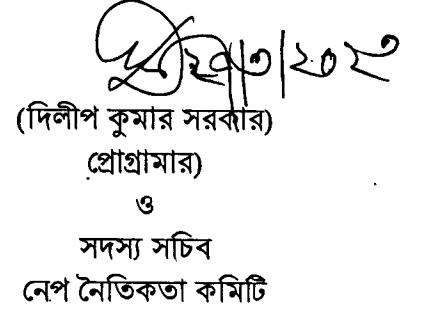 (দিলীপ কুমার সরকার)
প্রোগ্রামার)
ও
সদস্য সচিব
নেপ নৈতিকতা কমিটি